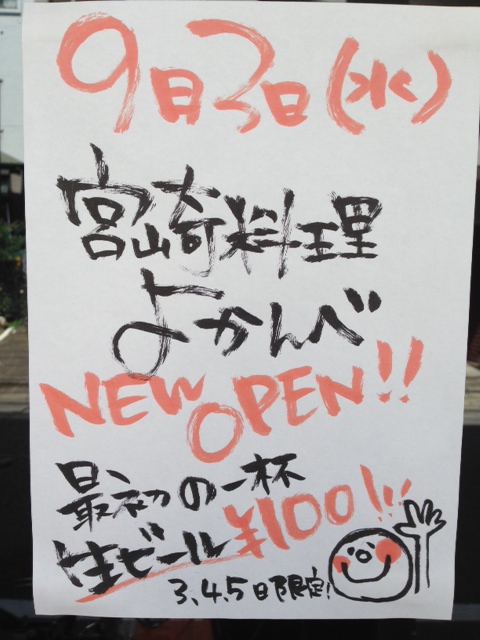 9月3日(水)
宮崎料理
よかんべ
NEW OPEN!!
最初の一杯
生ビール ¥100!!!
3.4.5日限定!